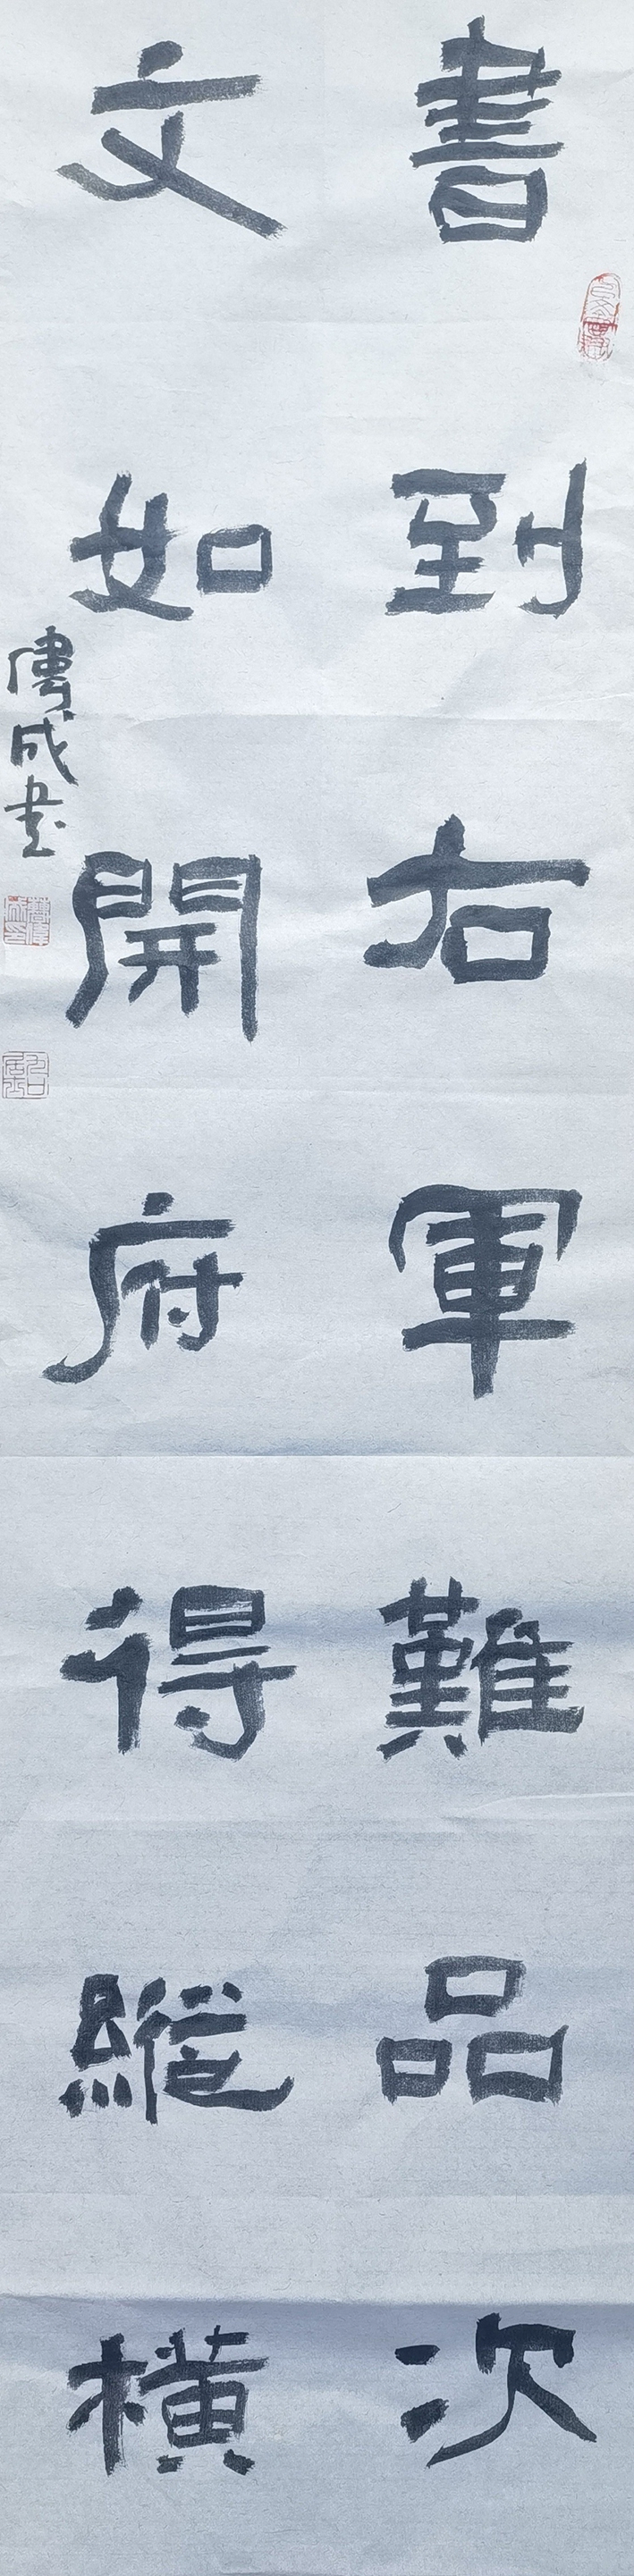 書到右軍難品次
文如開府得縱橫
傳成書